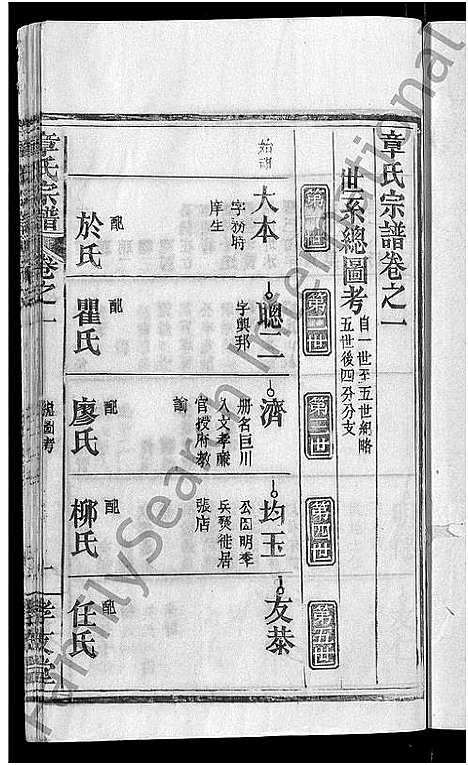 章氏宗譜卷之一
世系總圖考
自一世至五世紀略
五世後四分分支
第一世
第二世
第三世
第四世
第五世
始祖
大本
字務時
庠生
配
於氏
聰二
字興邦
配
瞿氏
濟
册名巨川
人文孝廉
官授府教
諭
配
廖氏
均玉
公因明季
兵燹徙居
張店
配
柳氏
友恭
配
任氏
章氏宗譜
卷之一
總圖考
一
孝友堂
FamilySearch International